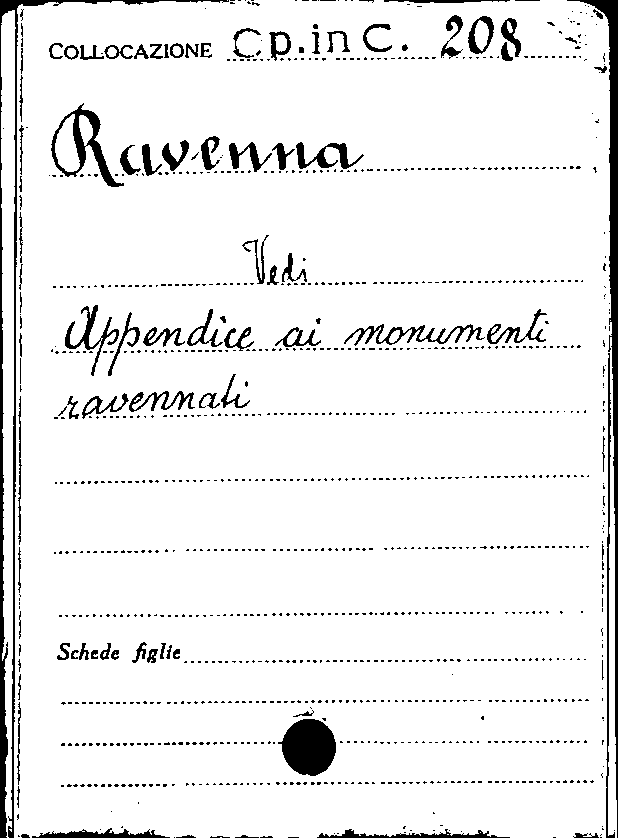 COLLOCAZIONE Cp. in C. 208
Ravenna
Vedi
Appendice ai monumenti
ravennati
Schede figlie